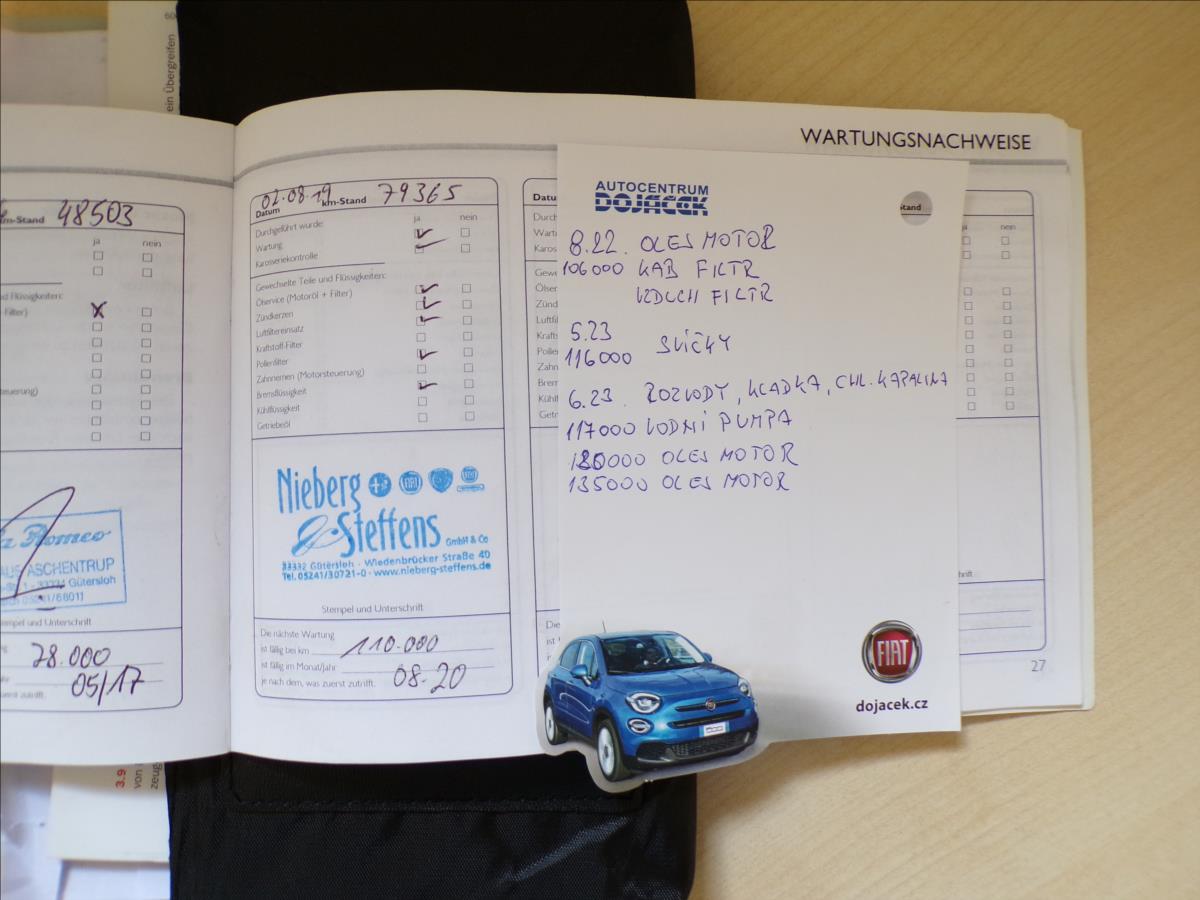 ein Übergreifen
WARTUNGSNACHWEISE
km-Stand 48503
ja nein
nd Flüssigkeiten:
Filter)
uerung)
Romeo
AUS ASCHENTRUP
33334 Gütersloh
empel und Unterschrift
78.000
05/17
zuerst zutrifft.
02.08.19 79365
Datum km-Stand
ja nein
Durchgeführt wurde:
Wartung
Karosseriekontrolle
Gewechselte Teile und Flüssigkeiten:
Ölservice (Motoröl + Filter)
Zündkerzen
Luftfiltereinsatz
Kraftstoff-Filter
Pollenfilter
Zahnriemen (Motorsteuerung)
Bremsflüssigkeit
Kühlflüssigkeit
Getriebeöl
Nieberg
FIAT
& Steffens GmbH & Co
33332 Gütersloh · Wiedenbrücker Straße 40
Tel. 05241/30721-0 · www.nieberg-steffens.de
Stempel und Unterschrift
Die nächste Wartung
ist fällig bei km 110.000
ist fällig im Monat/Jahr 08-20
je nach dem, was zuerst zutrifft.
Datu
Durch
Wart
Karos
Gewe
Ölser
Zünd
Luftfi
Krafts
Polle
Zahn
Brem
Kühlf
Getri
Die
ist f
AUTOCENTRUM
DOJÁČEK
Stand
8.22. OLEJ MOTOR
106000 KAB FILTR
VZDUCH FILTR
5.23
116000 SVÍČKY
6.23. ROZVODY, KLADKA, CHL. KAPALINA
117000 VODNÍ PUMPA
120000 OLEJ MOTOR
135000 OLEJ MOTOR
FIAT
dojacek.cz
hrift
27
3.9
von
zeug